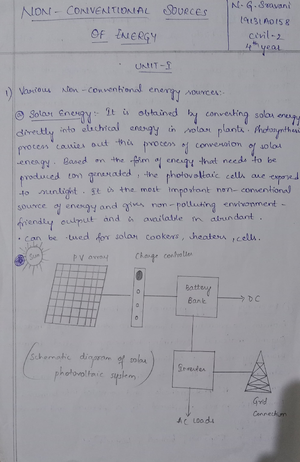 NON-CONVENTIONAL SOURCES
OF ENERGY
N. G. Sravani
19131A0158
Civil-2
4th year
UNIT-8
1) Various Non-conventional energy sources:-
@ Solar Energy:- It is obtained by converting solar energy
directly into electrical energy in solar plants. Photosynthesis
process carries out this process of conversion of solar
energy. Based on the form of energy that needs to be
produced (or) generated, the photovoltaic cells are exposed
to sunlight. It is the most important non-conventional
source of energy and gives non-polluting environment-
friendly output and is available in abundant.
• can be used for solar cookers, heaters, cells.
Sun
P.V array
Charge controller
Battery
Bank
D.C
(Schematic diagram of solar
photovoltaic system)
Inverter
Grid
Connection
AC Loads